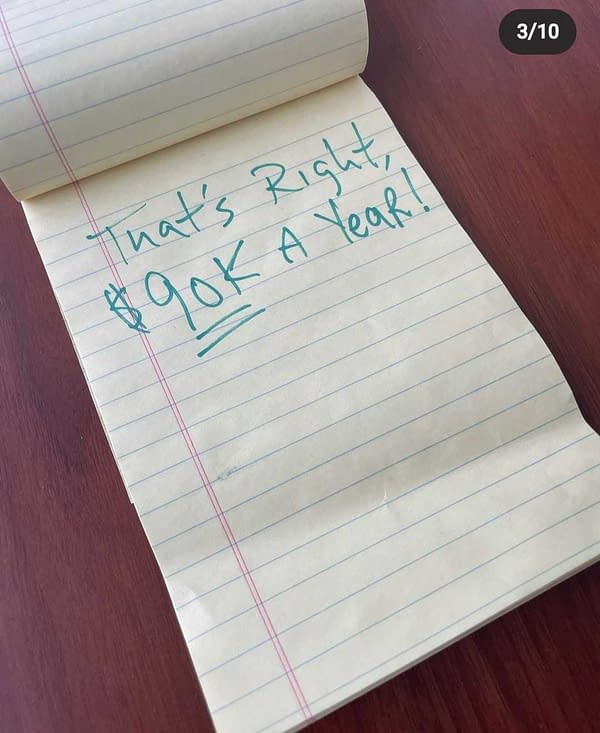 3/10
That's Right,
$90K A Year!